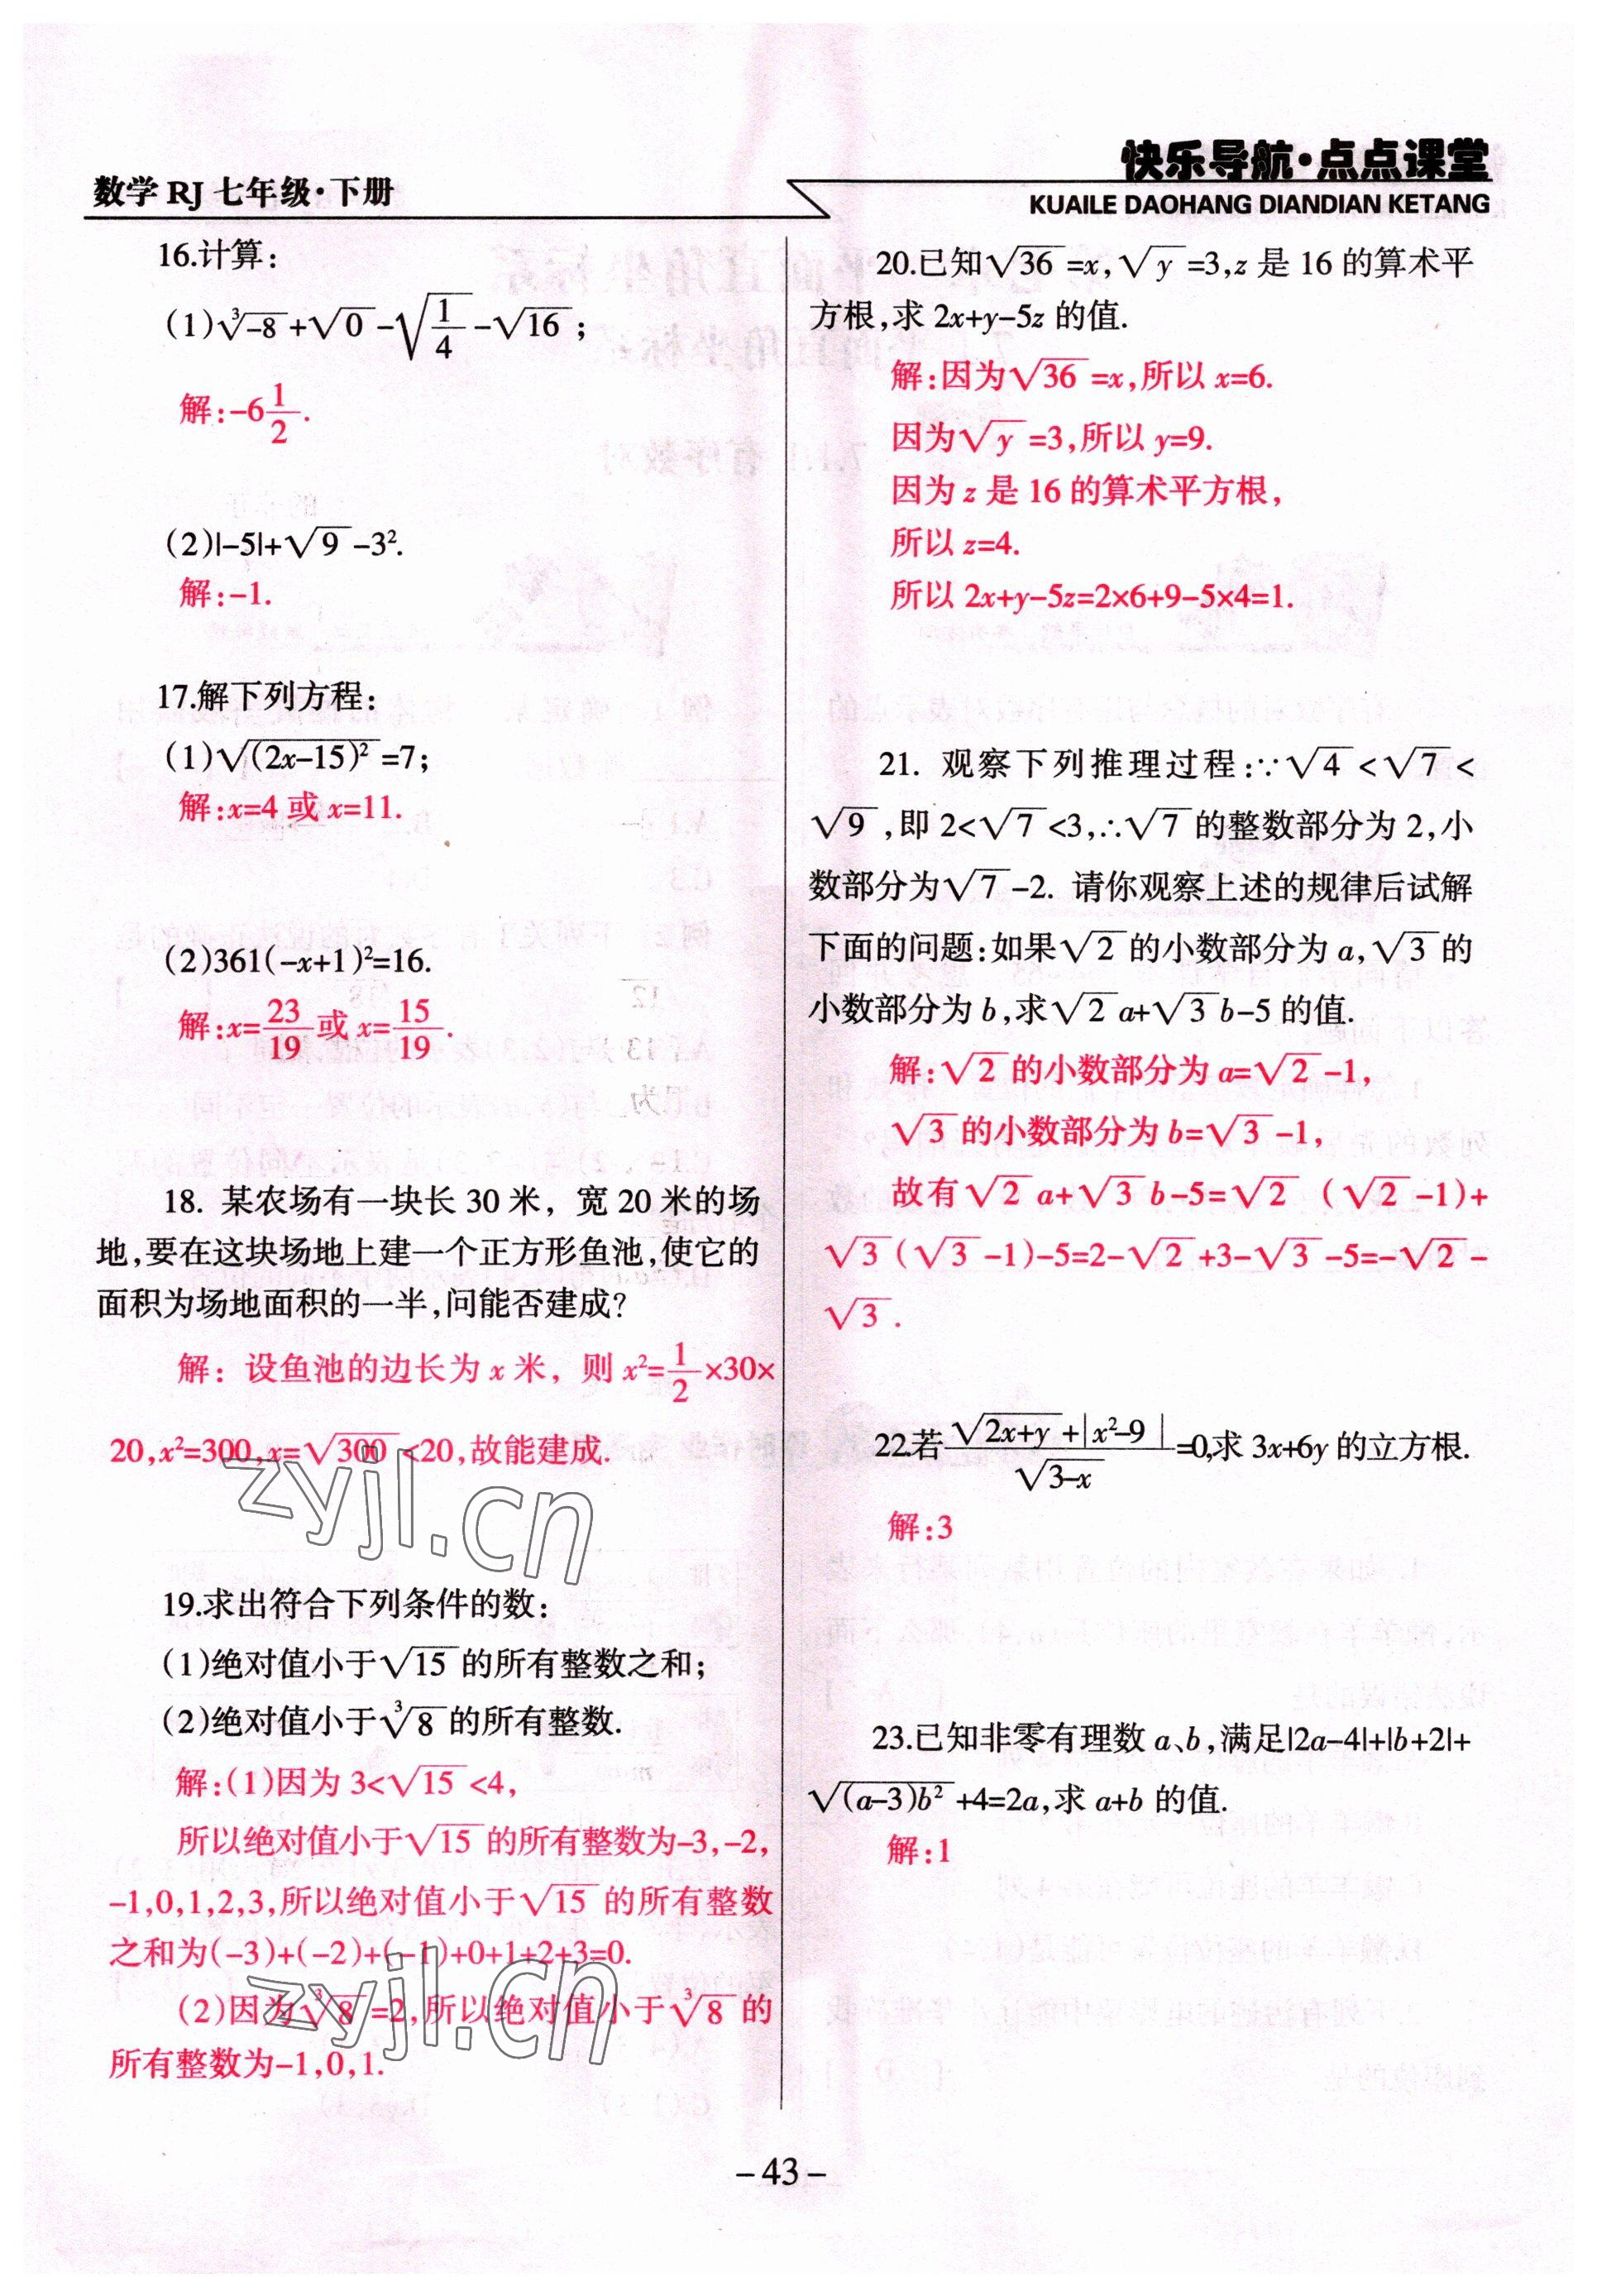 数学 RJ 七年级·下册
快乐导航·点点课堂
KUAILE DAOHANG DIANDIAN KETANG
16.计算:
(1)∛-8+√0-√(1/4)-√16;
解:-6 1/2.
(2)|-5|+√9-3².
解:-1.
17.解下列方程:
(1)√(2x-15)²=7;
解:x=4 或 x=11.
(2)361(-x+1)²=16.
解:x=23/19或 x=15/19.
18. 某农场有一块长 30 米, 宽 20 米的场
地,要在这块场地上建一个正方形鱼池,使它的
面积为场地面积的一半,问能否建成?
解: 设鱼池的边长为 x 米, 则 x²=1/2×30×
20,x²=300,x=√300<20,故能建成.
19.求出符合下列条件的数:
(1)绝对值小于√15的所有整数之和;
(2)绝对值小于∛8的所有整数.
解:(1)因为 3<√15<4,
所以绝对值小于√15的所有整数为-3,-2,
-1,0,1,2,3,所以绝对值小于√15的所有整数
之和为(-3)+(-2)+(-1)+0+1+2+3=0.
(2)因为∛8=2,所以绝对值小于∛8的
所有整数为-1,0,1.
20.已知√36=x,√y=3,z 是 16 的算术平
方根,求 2x+y-5z 的值.
解:因为√36=x,所以 x=6.
因为√y=3,所以 y=9.
因为 z 是 16 的算术平方根,
所以 z=4.
所以 2x+y-5z=2×6+9-5×4=1.
21. 观察下列推理过程:∵√4<√7<
√9,即 2<√7<3,∴√7的整数部分为 2,小
数部分为√7-2. 请你观察上述的规律后试解
下面的问题:如果√2的小数部分为 a,√3的
小数部分为 b,求√2a+√3b-5 的值.
解:√2的小数部分为 a=√2-1,
√3的小数部分为 b=√3-1,
故有√2a+√3b-5=√2 (√2-1)+
√3(√3-1)-5=2-√2+3-√3-5=-√2-
√3.
22.若(√(2x+y)+|x²-9|)/√(3-x)=0,求 3x+6y 的立方根.
解:3
23.已知非零有理数 a、b,满足|2a-4|+|b+2|+
√((a-3)b²)+4=2a,求 a+b 的值.
解:1
zyjl.cn
zyjl.cn
-43-